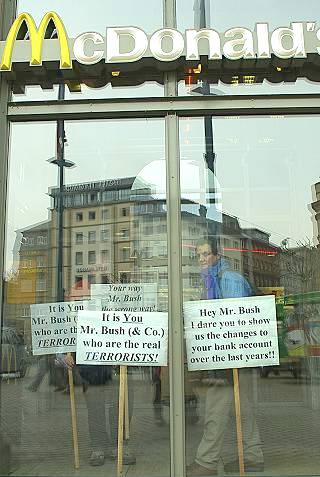 McDonald's
Your way
Mr. Bush
the wrong way!
It is You
Mr. Bush
who are the
TERRORISTS
It is You
Mr. Bush (& Co.)
who are the real
TERRORISTS!
Hey Mr. Bush
I dare you to show
us the changes to
your bank account
over the last years!!